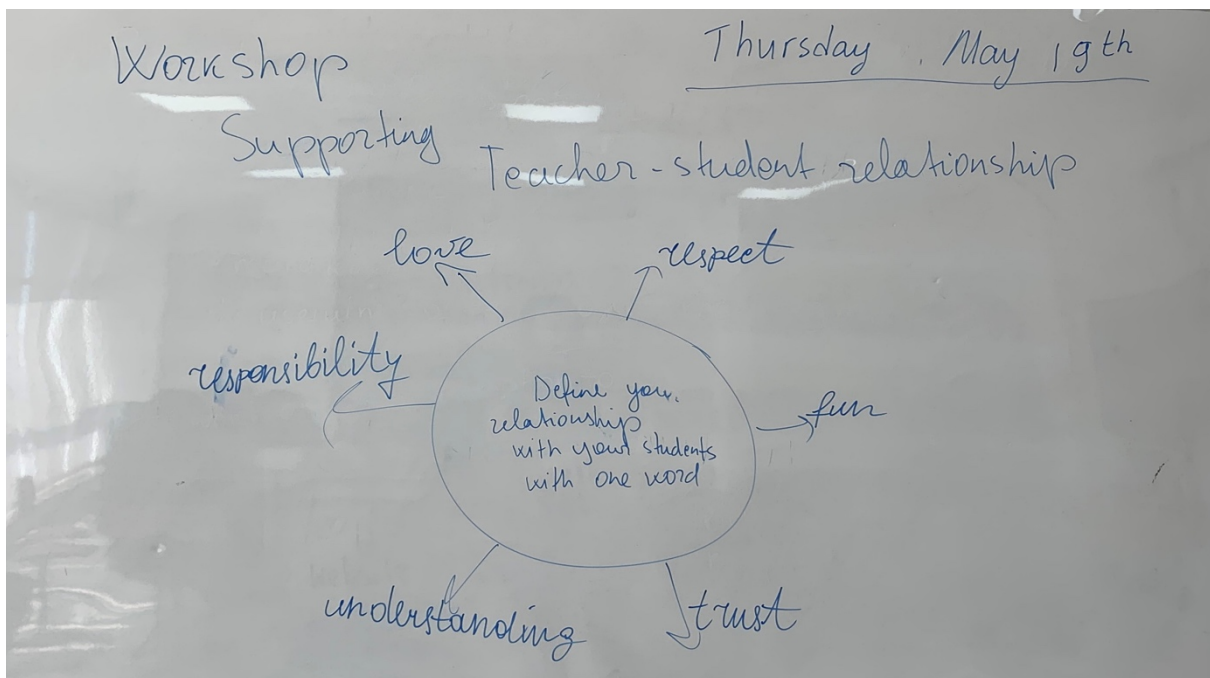 Workshop
Thursday, May 19th
Supporting
Teacher-student relationship
love
respect
responsibility
Define your
relationship
with your students
with one word
fun
understanding
trust